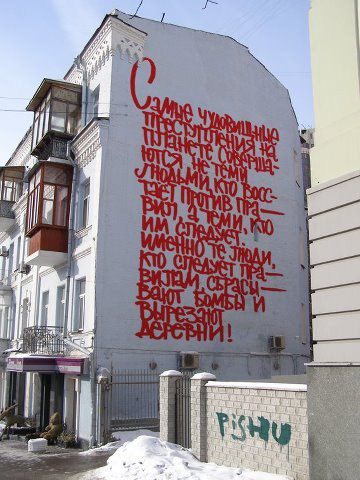 Самые чудовищные
преступления на
планете соверша-
ются не теми
людьми, кто восс-
таёт против пра-
вил, а теми, кто
им следует.
именно те люди,
кто следует пра-
вилам, сбрасы-
вают бомбы и
вырезают
деревни!
PISHU